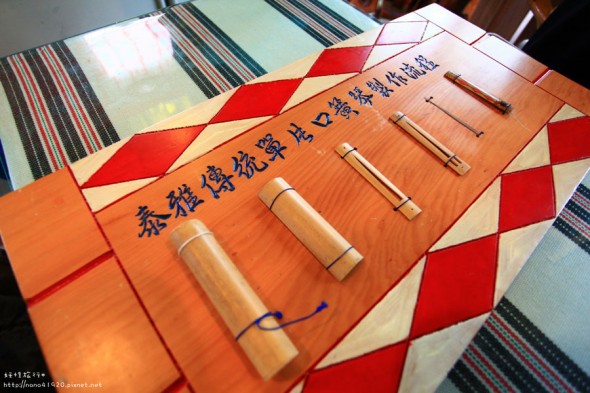 泰雅傳統單片口簧琴製作流程
好情旅行*
http://nono41920.pixnet.net